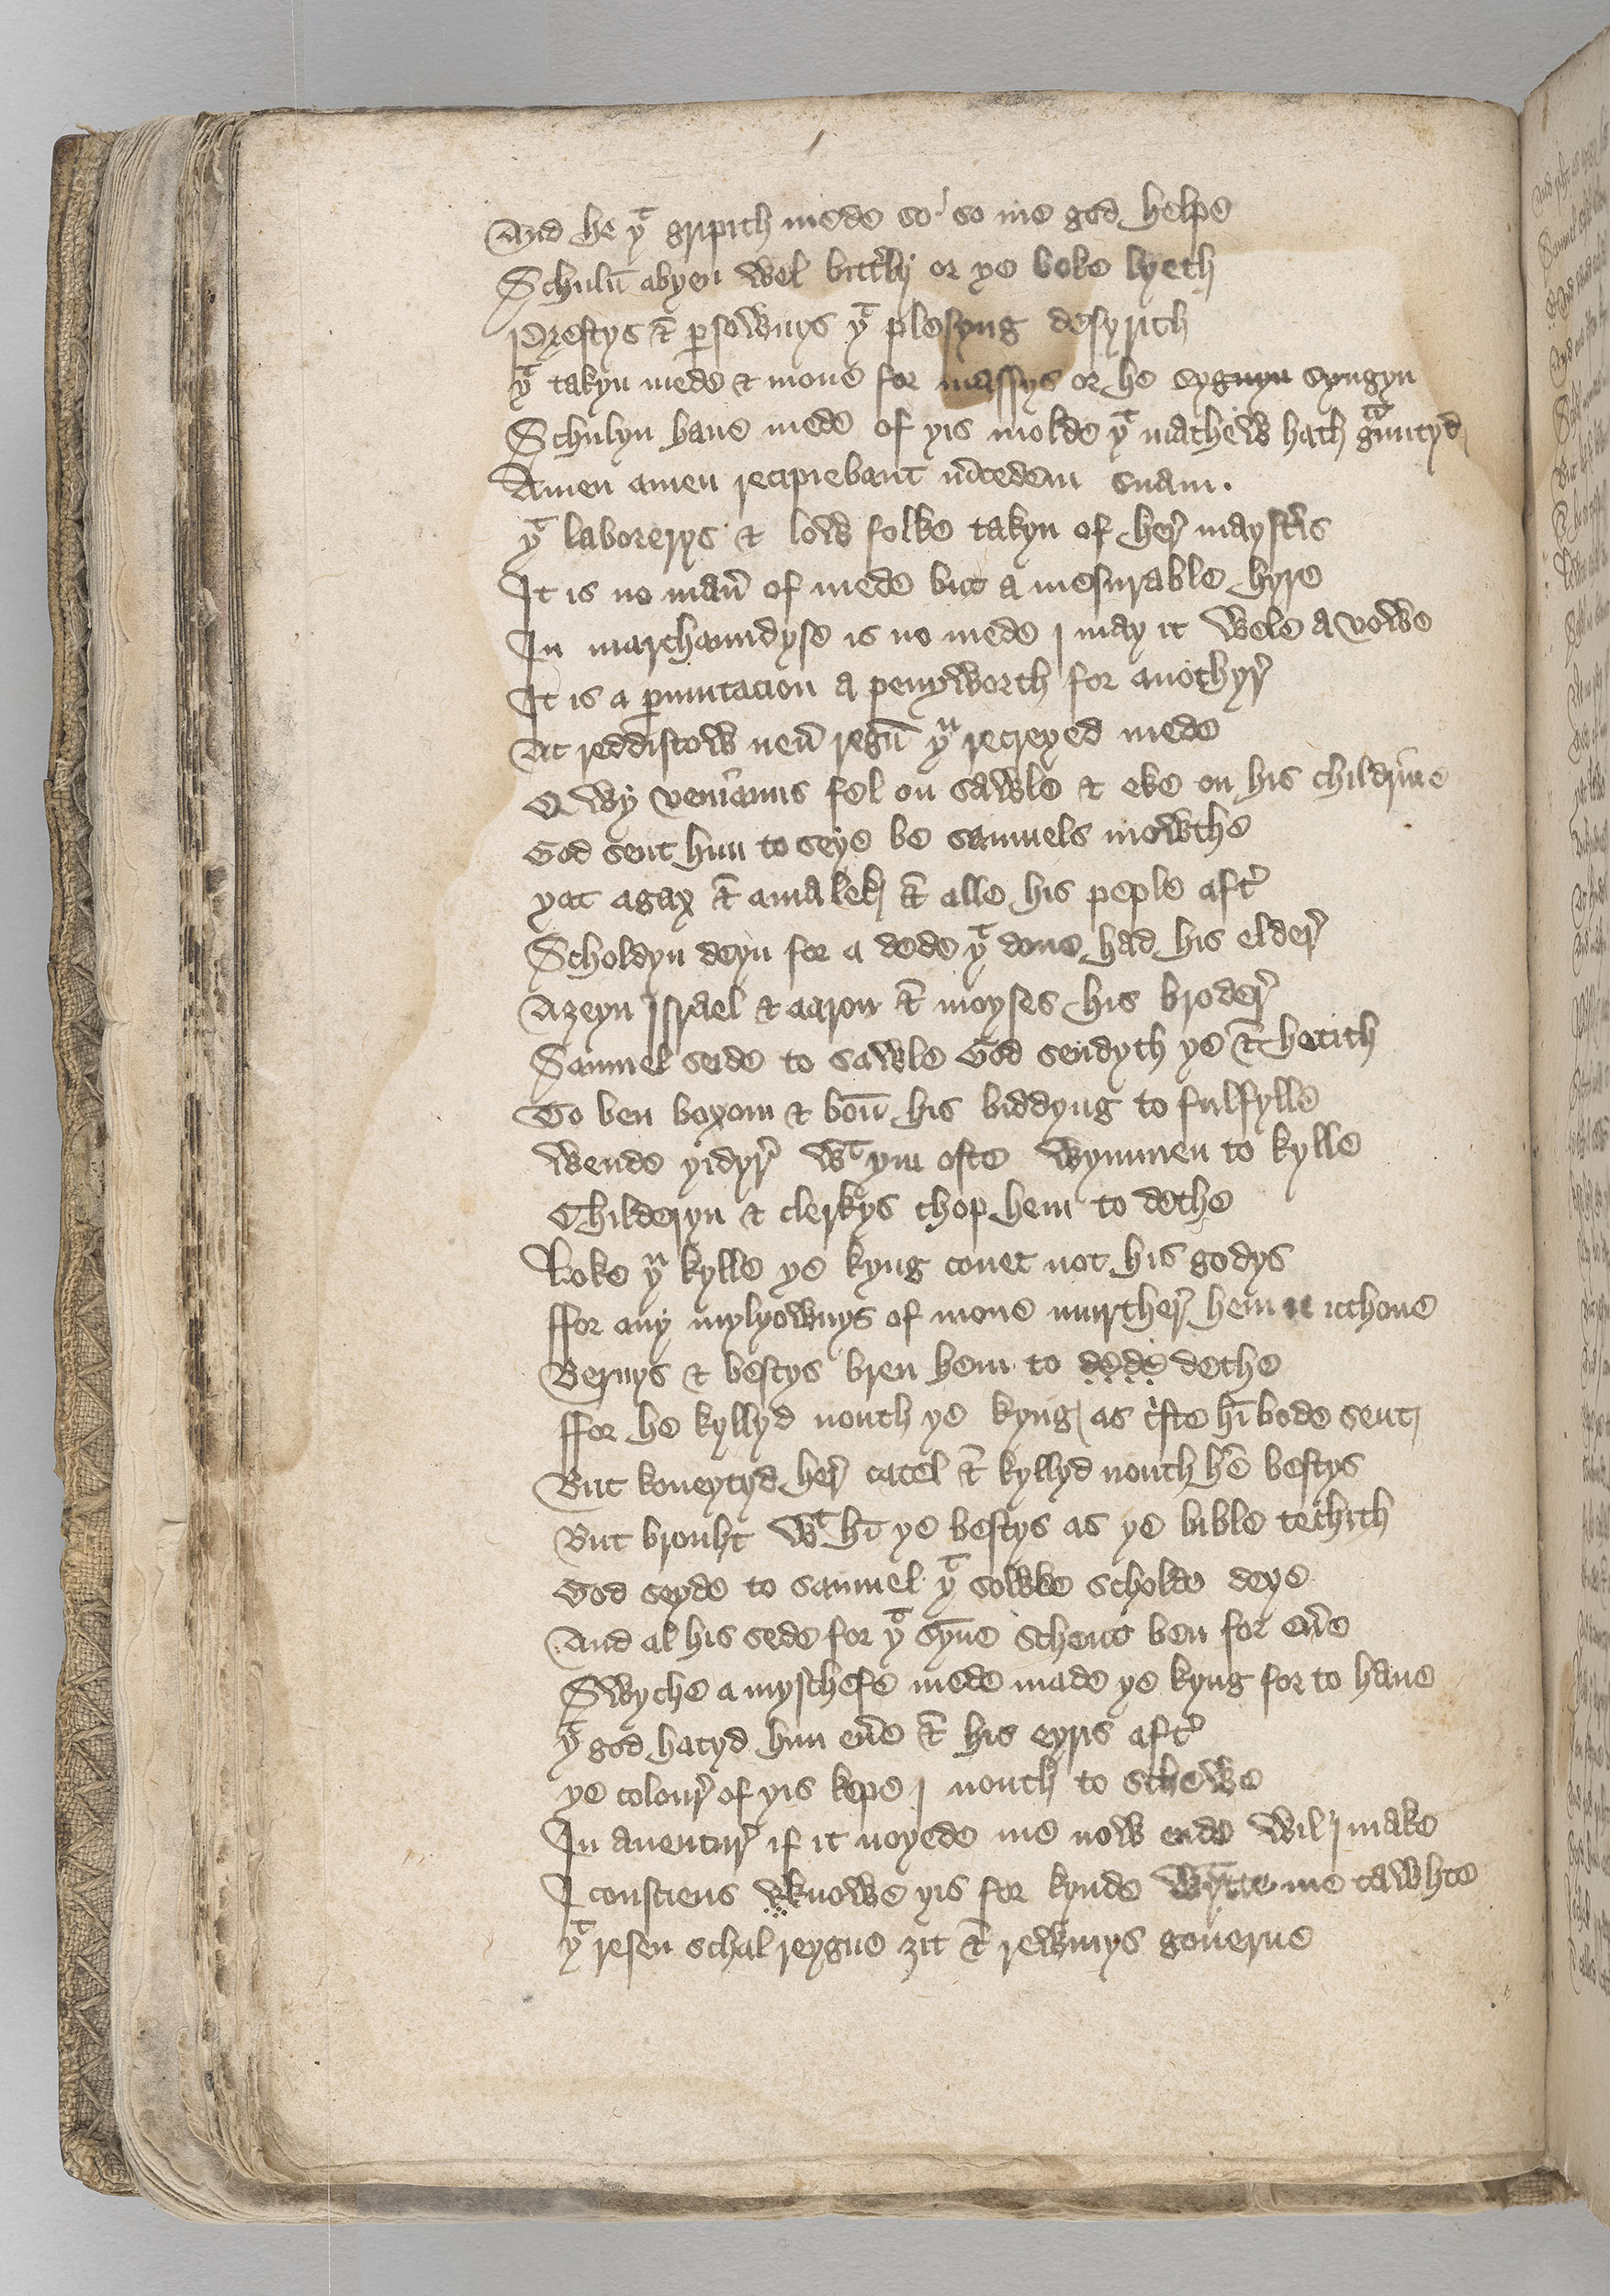 And he yͭ gripith mede so / so me god helpe
Schuln̄ abyen wel bitt'ly or ye boke lyeth
Prestys & p̱sownys yͭ plesyng desyrith
yͭ takyn mede & mone for massys or he sygnyn syngyn
Schulyn haue mede of yis molde yͭ mathew hath gͣuntyd
Amen amen recipiebant m̄cedem suam .
yͭ laborerys & low folke takyn of her' mayst'is
It is no man' of mede but a mesurable hyre
In marchaundyse is no mede j may it wele a vowe
It is a p̱mutacion a penyworth for anothyr'
At reddistow neu' regū yͧ recreyed mede
Q wy veni'anns fel on sawle & eke on his childr'ine
God sent him to seye be samuels mowthe
yat agax & amalek & alle his peple aft'
Scholdyn deyn for a dede yͭ done had his elder'
Azeyn Israel & aaron & moyses his broder'
Samuel seide to sawle God sendyth ye & hotith
To ben boxom & boū his biddyng to fulfylle
Wende yidyr' wͭ yin oste wymmen to kylle
Childeryn & clerkys chop hem to dethe
Loke yͧ kylle ye kyng couet not his godys
ffor any mylyownys of mone murther' hem icchone
Bernys & bestys bren hem to dede dethe
ffor he kyllyd nouth ye kyng as c'ste hī bode sent
But koueytyd her' catel & kyllyd nouth h' bestys
But brouht wͭ hī ye bestys as ye bible techith
God seyde to samuel yͭ sowle scholde deye
And al his sede for yͭ syn̄e schent ben for eu'e
Swyche a myschefe mede made ye kyng for to haue
yͭ god hatyd him eu'e & his eyris aft'
ye colour' of yis kepe j nouth to schewe
In auentur' if it noyede me now ende wil j make
I consciens knowe yis for kynde wytte me tawhte
yͭ resen schal reygne zit & rewmys gouerne